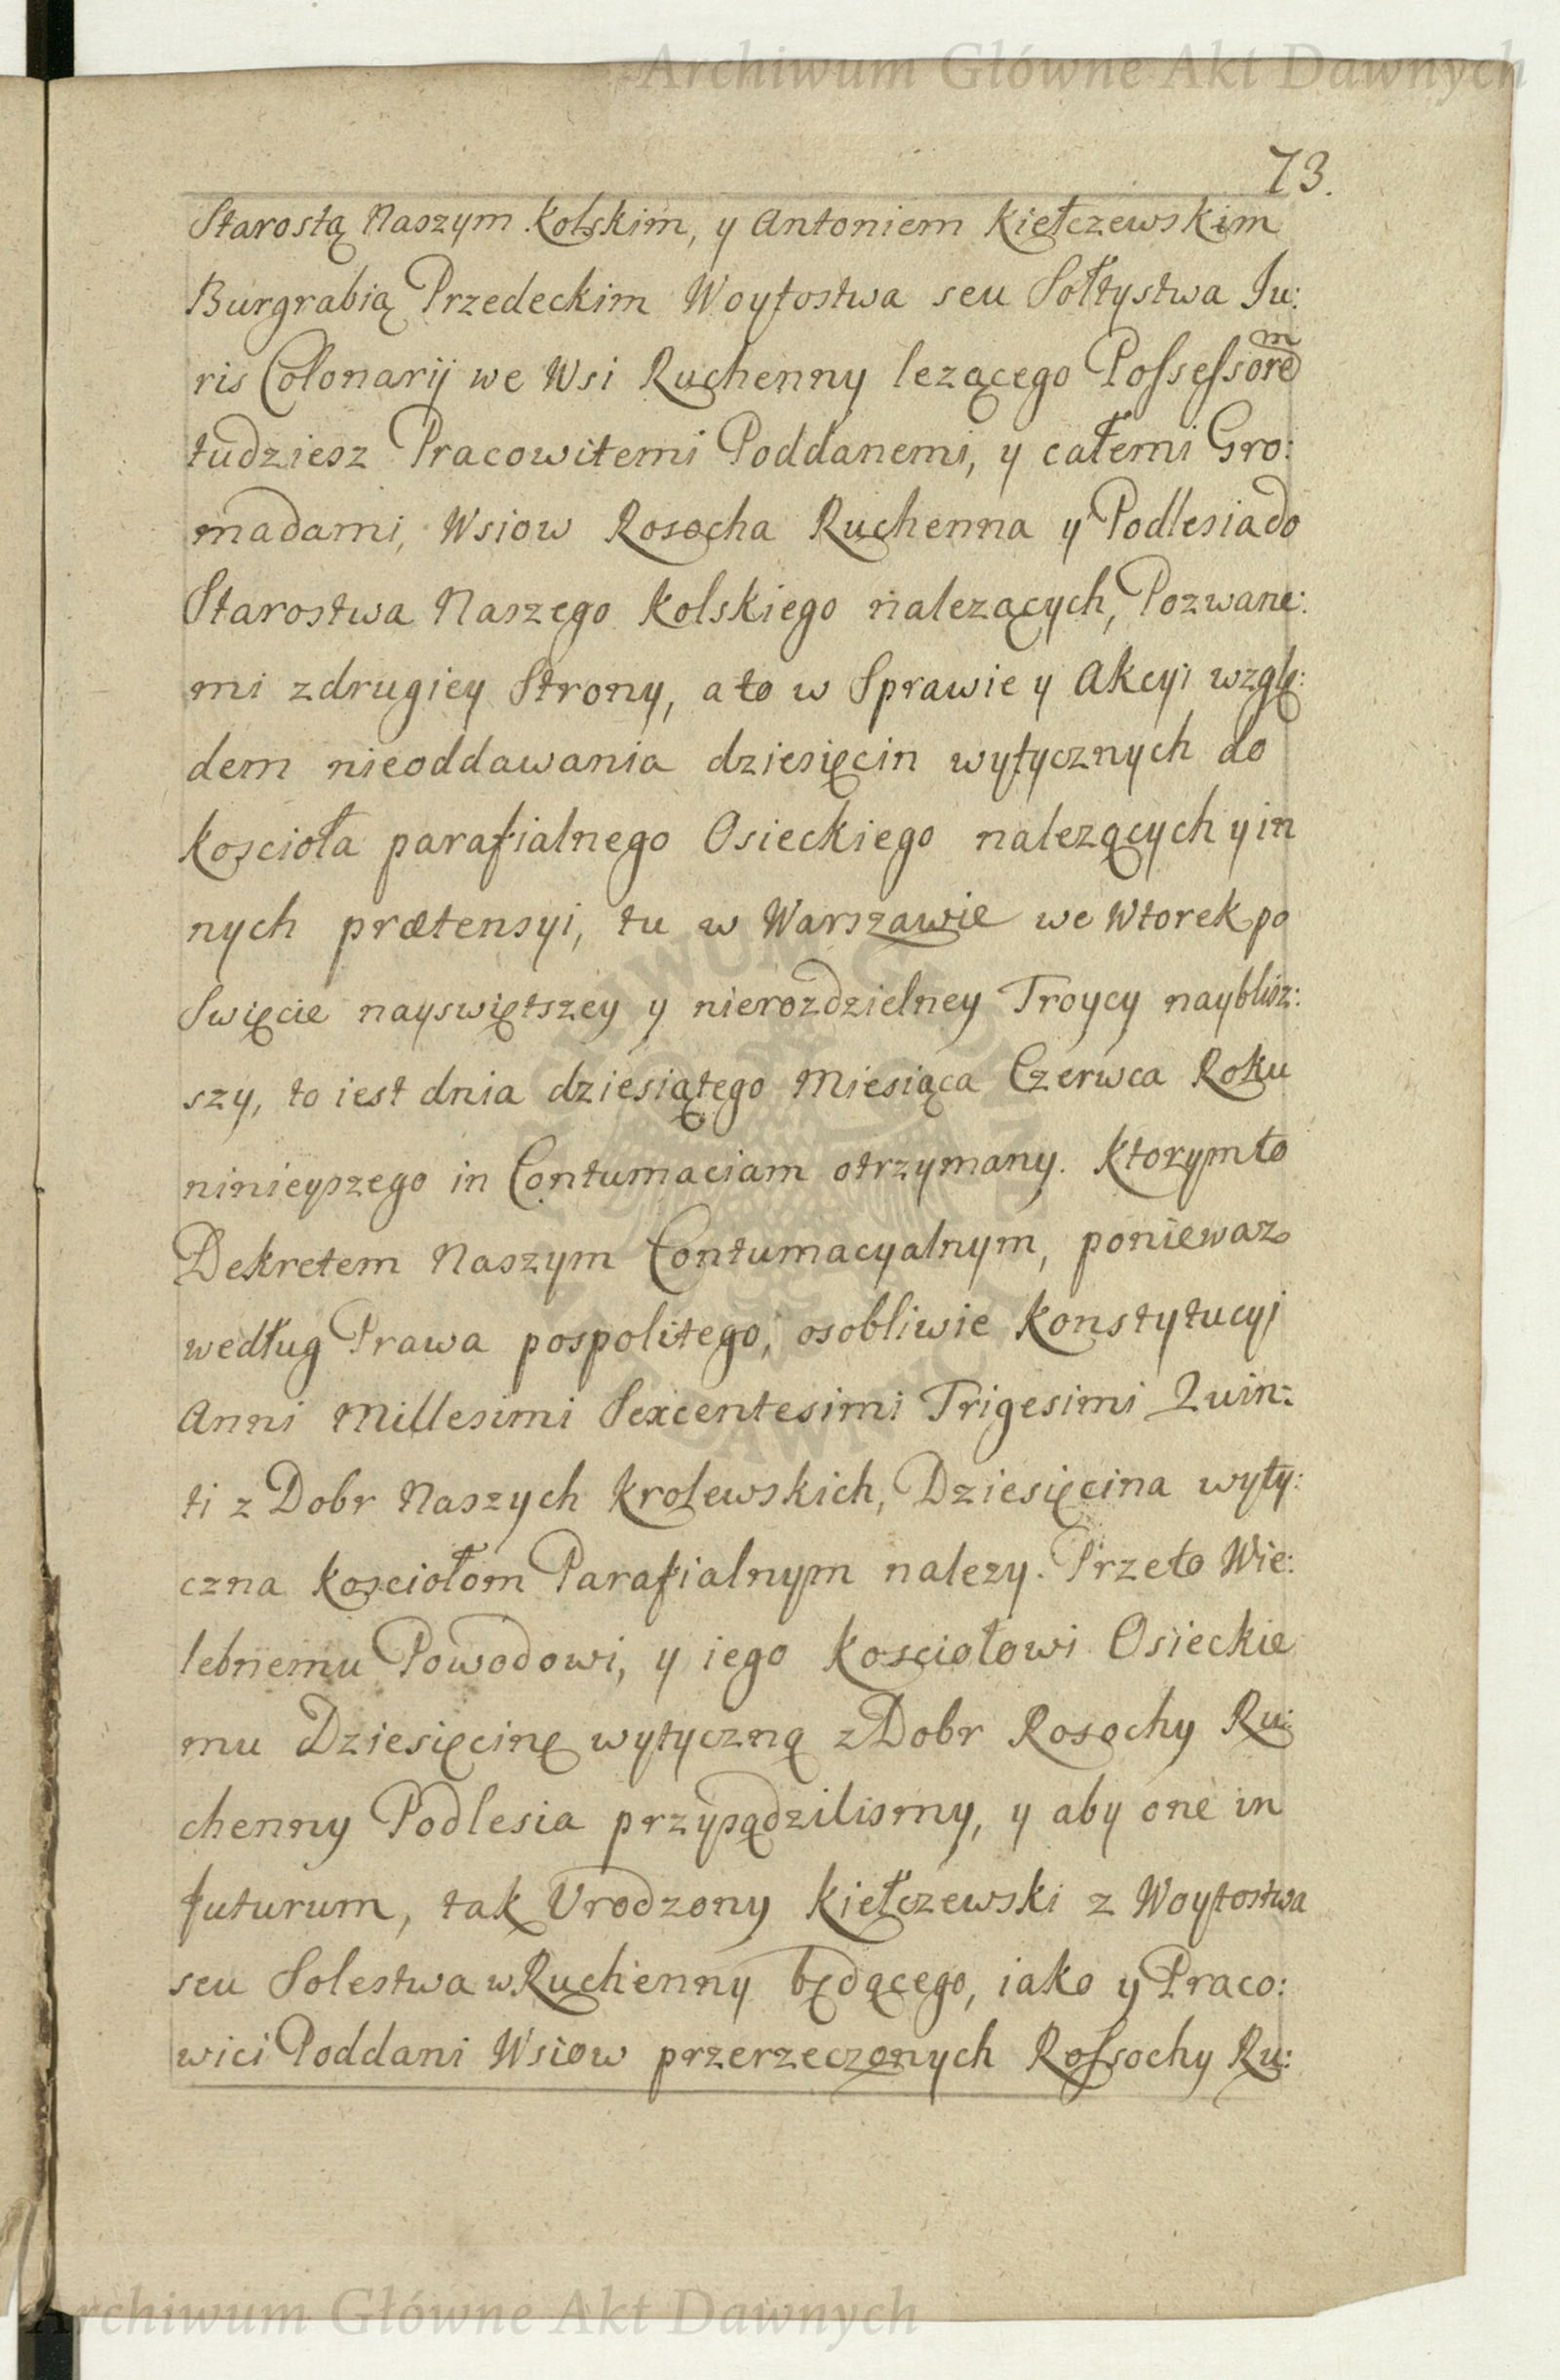 Archiwum Główne Akt Dawnych
73.
Starostą Naszym Kolskim, y Antoniem Kiełczewskim
Burgrabią Przedeckim Woytostwa seu Sołtystwa Ju:
ris Colonarij we Wsi Ruchenny lezącego Possessorem
tudziesz Pracowitemi Poddanemi, y całemi Gro:
madami, Wsiow Rosocha Ruchenna y Podlesia do
Starostwa Naszego Kolskiego nalezących, Pozwane:
mi z drugiey Strony, a to w Sprawie y Akcyi wzglę:
dem nieoddawania dziesięcin wytycznych do
Koscioła parafialnego Osieckiego nalezących y in
nych prætensyi, tu w Warszawie we Wtorek po
Swięcie nayswiętszey y nierozdzielney Troycy naybliz:
szy, to iest dnia dziesiątego Miesiąca Czerwca Roku
ninieyszego in Contumaciam otrzymany. Ktorym to
Dekretem Naszym Contumacyalnym, poniewaz
według Prawa pospolitego, osobliwie Konstytucyi
Anni Millesimi Sexcentesimi Trigesimi Quin:
ti z Dobr Naszych Krolewskich, Dziesięcina wyty:
czna Kosciołom Parafialnym nalezy. Przeto Wie:
lebnemu Powodowi, y iego Kosciołowi Osieckie
mu Dziesięcinę wytyczną z Dobr Rosochy Ru:
chenny Podlesia przysądzilismy, y aby one in
futurum, tak Urodzony Kiełczewski z Woytostwa
seu Solestwa w Ruchenny będącego, iako y Praco:
wici Poddani Wsiow przerzeczonych Rossochy Ru:
Archiwum Główne Akt Dawnych